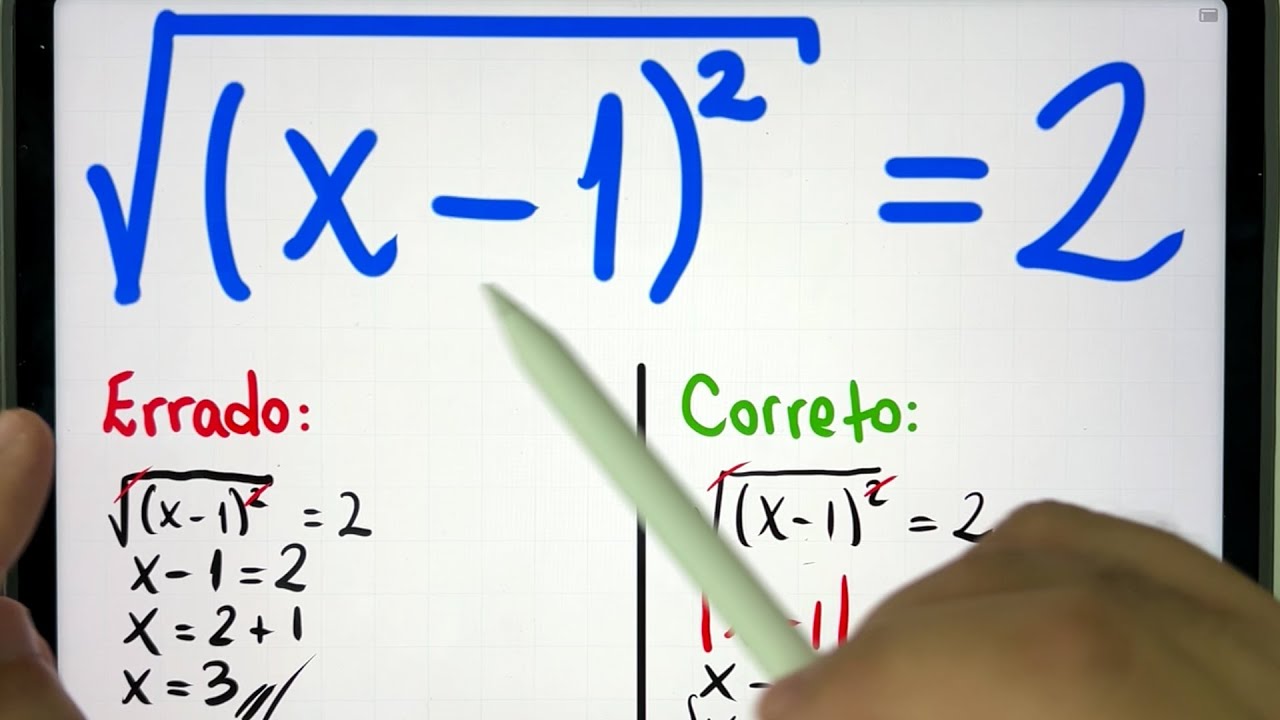 √(x-1)² = 2
Errado:
√(x-1)² = 2
x-1=2
x=2+1
x=3
Correto:
√(x-1)² = 2
x-